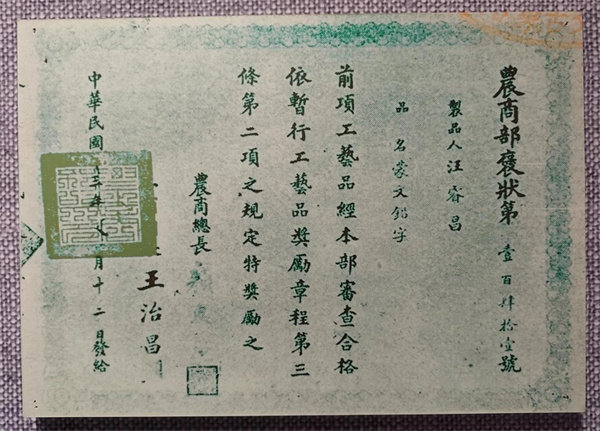 農商部褒狀第壹百肆拾壹號
製品人汪睿昌
品名蒙文鉛字
前項工藝品經本部審查合格
依暫行工藝品獎勵章程第三
條第二項之規定特獎勵之
農商總長
王治昌
中華民國十三年 月十二日發給